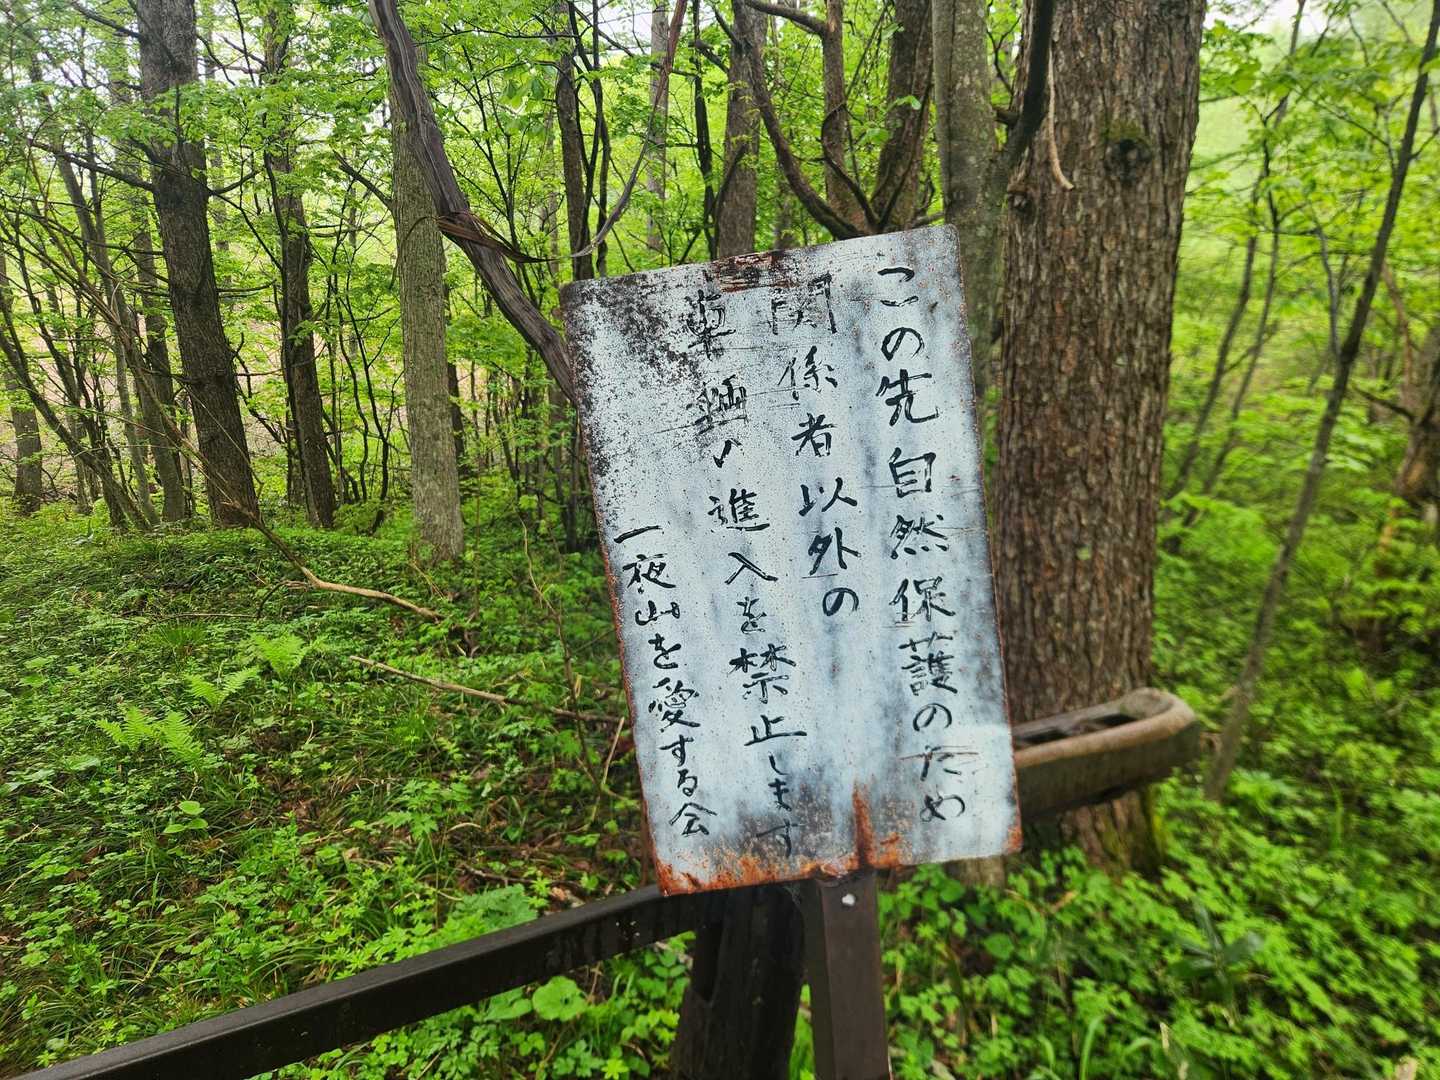 この先自然保護のため
関係者以外の
車輌の進入を禁止します
一夜山を愛する会